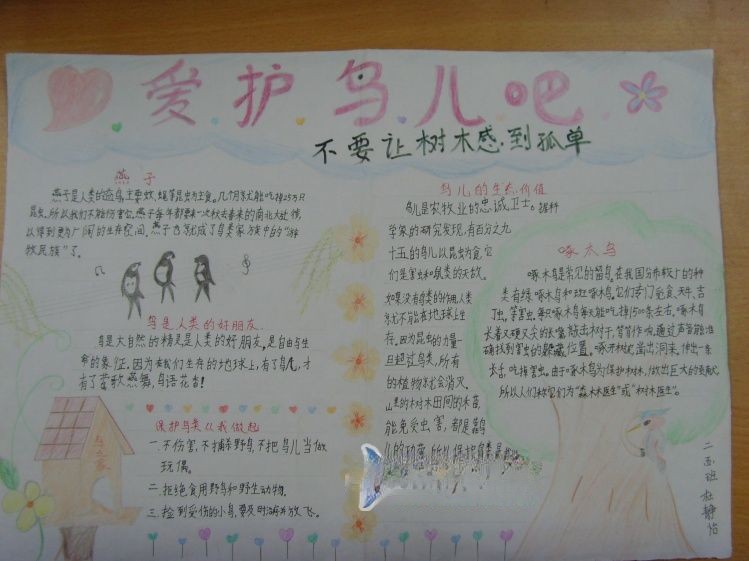 爱护鸟儿吧
不要让树木感到孤单
燕子
燕子是人类的益鸟,主要蚊、蝇等昆虫为主食。几个月就能吃掉25万只
昆虫。所以我们不能伤害它。燕子每年都要来一次秋去春来的南北大迁徙,
以得到更为广阔的生存空间。燕子也就成了鸟类家族中的“游
牧民族”了。
鸟是人类的好朋友
鸟是大自然的精灵,是人类的好朋友。是自由与生
命的象征。因为在我们生存的地球上,有了鸟儿,才
有了莺歌燕舞,鸟语花香!
鸟之家
保护鸟类从我做起
一.不伤害,不捕杀野鸟,不把鸟儿当做
玩偶。
二.拒绝食用野鸟和野生动物。
三.捡到受伤的小鸟,要及时治疗并放飞。
鸟儿的生态价值
鸟儿是农牧业的忠诚卫士。据科
学家的研究发现,有百分之九
十五的鸟儿以昆虫为食,它
们是害虫和鼠类的天敌。
如果没有鸟类的作用,人类
就不能在地球上生
存。因为昆虫的力量一
旦超过鸟类,所有
的植物就会消灭。
山里的树木田间的禾苗,
能免受虫害,都是靠鸟
所以保护鸟类是
啄木鸟
啄木鸟是常见的留鸟,在我国分布较广的种
类有绿啄木鸟和斑啄木鸟。它们专门觅食天牛、吉
丁虫、等害虫。每只啄木鸟每天能吃掉1500条左右。啄木鸟
长着又硬又尖的长嘴敲击树干,笃笃作响,通过声音能准
确找到害虫的躲藏位置。啄开树皮,凿出洞来,伸出一条
长舌,吃掉害虫。由于啄木鸟为保护树林,做出巨大的贡献,
所以人们称它们为“森林医生”或“树木医生”。
二五班 杜静怡